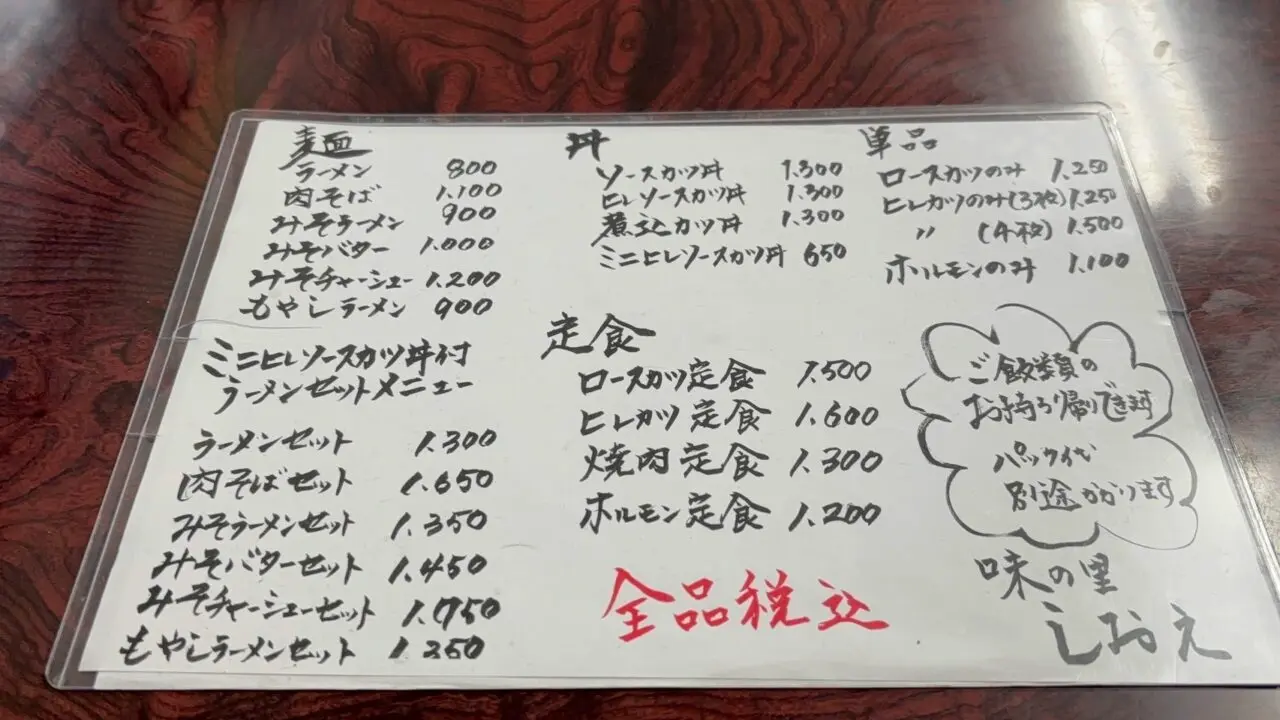 麺
ラーメン 800
肉そば 1.100
みそラーメン 900
みそバター 1.000
みそチャーシュー 1.200
もやしラーメン 900
ミニヒレソースカツ丼付
ラーメンセットメニュー
ラーメンセット 1.300
肉そばセット 1.650
みそラーメンセット 1.350
みそバターセット 1.450
みそチャーシューセット
もやしラーメンセット
丼
ソースカツ丼 1.300
ヒレソースカツ丼 1.300
煮込カツ丼 1.300
ミニヒレソースカツ丼 650
定食
ロースカツ定食 1.500
ヒレカツ定食 1.600
焼肉定食 1.300
ホルモン定食 1.200
全品税込
単品
ロースカツのみ 1.250
ヒレカツのみ(3枚) 1.250
〃 (4枚) 1.500
ホルモンのみ 1.100
ご飯類の
お持ち帰りできます
パック代が
別途かかります
味の里
しおえ